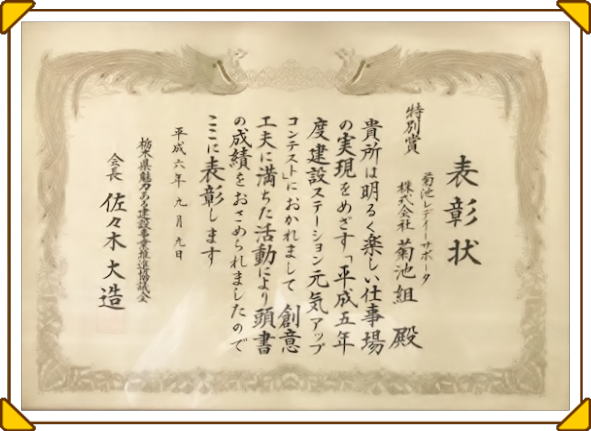 表彰状
特別賞
菊池レディーサポータ
株式会社 菊池組 殿
貴所は明るく楽しい仕事場
の実現をめざす「平成五年
度建設ステーション元気アップ
コンテスト」におかれまして 創意
工夫に満ちた活動により頭書
の成績をおさめられましたので
ここに表彰します
平成六年九月九日
栃木県魅力ある建設事業推進協議会
会長 佐々木大造